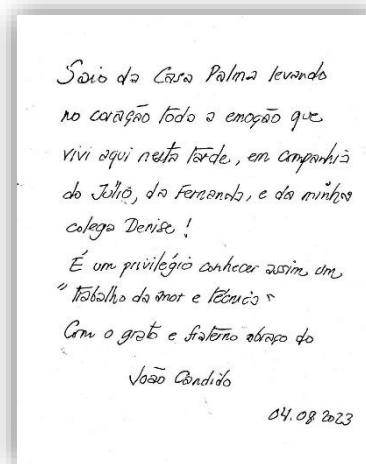 Saio da Casa Palma levando
no coração toda a emoção que
vivi aqui nesta tarde, em companhia
do Júlio, da Fernanda, e da minha
colega Denise!
É um privilégio conhecer assim um
"trabalho da amor e técnica"
Com o grato e fraterno abraço do
João Candido
04.08 2023